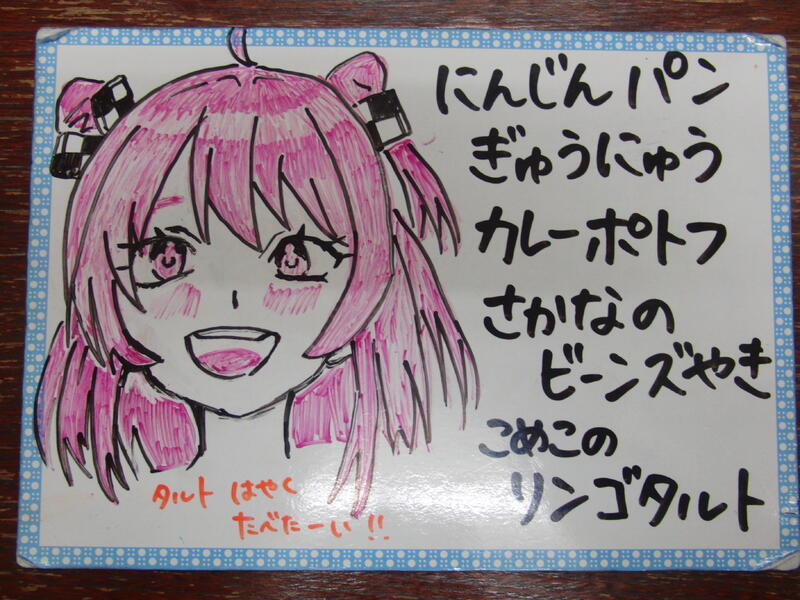 にんじんパン
ぎゅうにゅう
カレーポトフ
さかなの
ビーンズやき
こめこの
リンゴタルト
タルト はやく
たべたーい!!